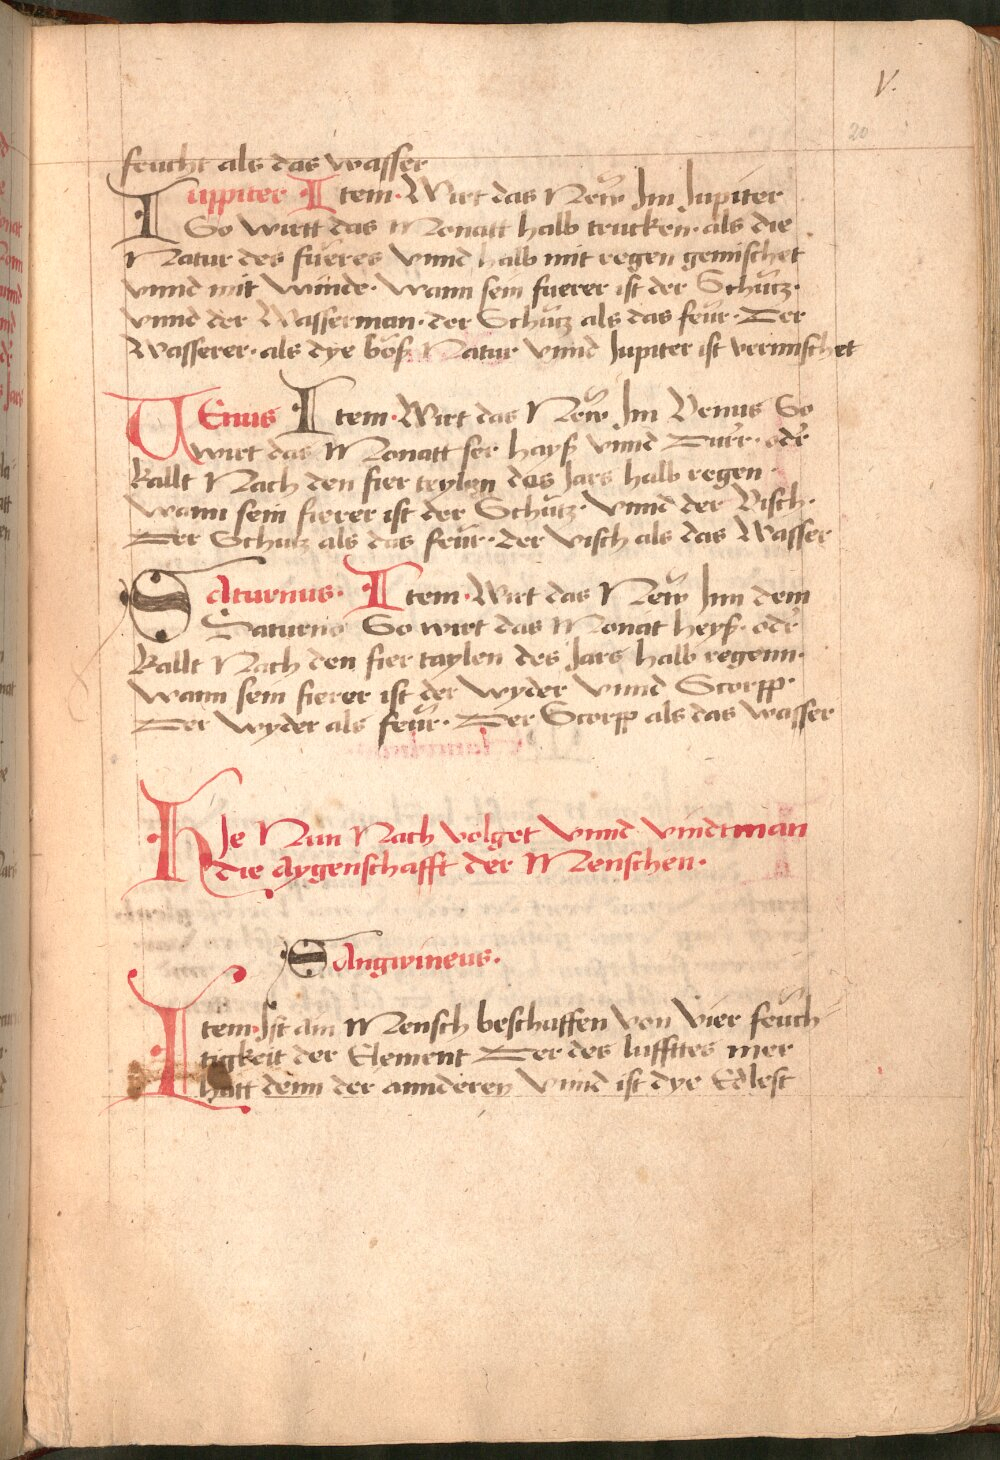 V.
20
feucht als das wasser
Iuppiter Item · Wirt das New Im Jupiter
So wirtt das Monatt halb trucken · als die
Natur des füeres vnnd halb mit regen gemischet
vnnd mit winde · wann sein fuerer ist der Schütz ·
vnnd der Wasserman · der Schütz als das feür · Der
Wasserer · als dye böß Natur vnnd Jupiter ist vermischet
VEnus Item · Wirt das New Im Venus So
wirt das Monatt ser hayß vnnd Dürr · oder
kallt Nach den fier teylen des Jars halb regen ·
wann sein fierer ist der Schütz · vnnd der Visch ·
Der Schutz als das feür · der visch als das Wasser
SAturnus · Item · Wirt das New Inn dem
Saturno So wirt das Monat heyß · oder
kallt Nach den fier taylen des Jars halb regenn ·
wann sein fierer ist der wyder vnnd Scorpp ·
Der wyder als feür · Der Scorpp als das wasser
HJe Nun Nach volget vnnd vindt man
die Aygenschafft der Menschen ·
SAngwineus ·
Item · Ist ain Mensch beschaffen von vier feüch
tigkeit der Element Der des luffttes mer
hatt denn der annderen vnnd ist dye Edlest